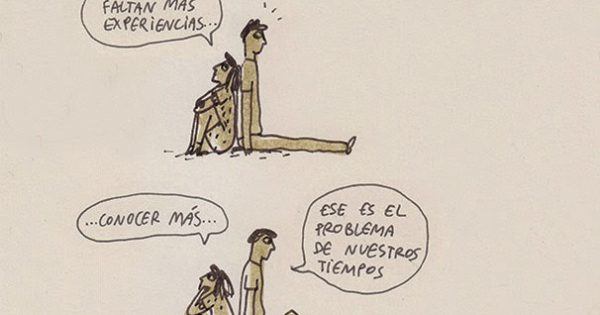 FALTAN MÁS
EXPERIENCIAS...
...CONOCER MÁS...
ESE ES EL
PROBLEMA
DE NUESTROS
TIEMPOS